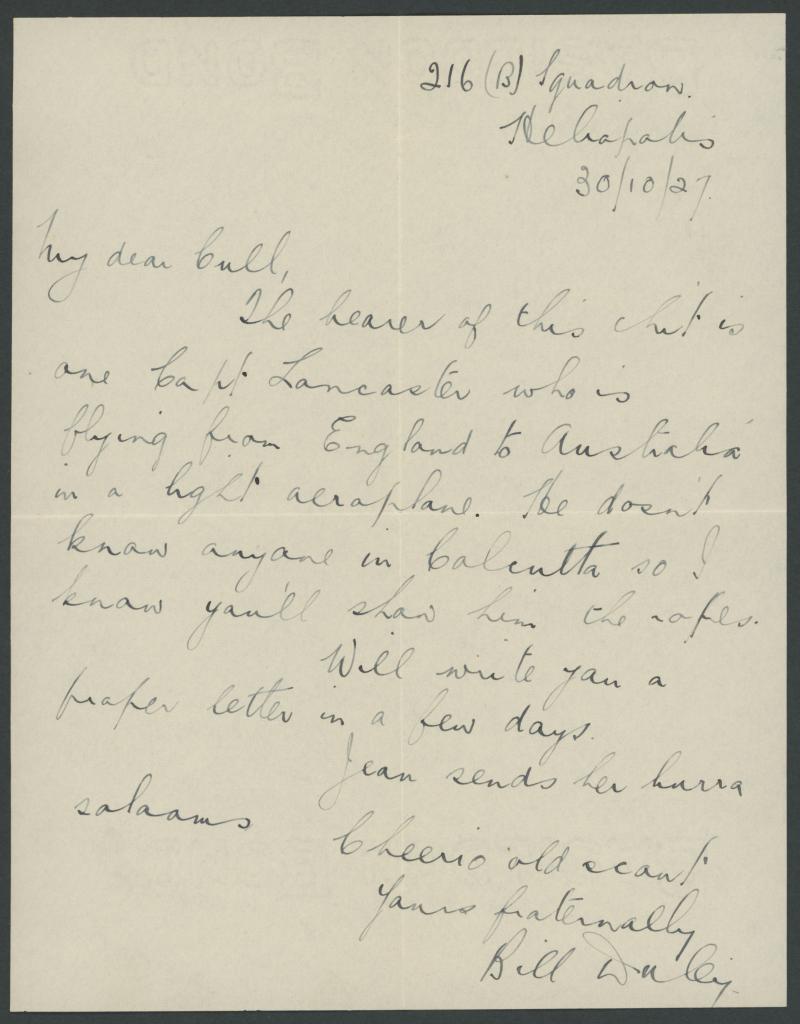 216 (B) Squadron.
Heliopolis
30/10/27.
My dear Cull,
The bearer of this chit is
one Capt Lancaster who is
flying from England to Australia
in a light aeroplane. He dosn't
know anyone in Calcutta so I
know you'll show him the ropes.
Will write you a
proper letter in a few days.
Jean sends her burra
salaams
Cheerio old scout
Yours fraternally
Bill